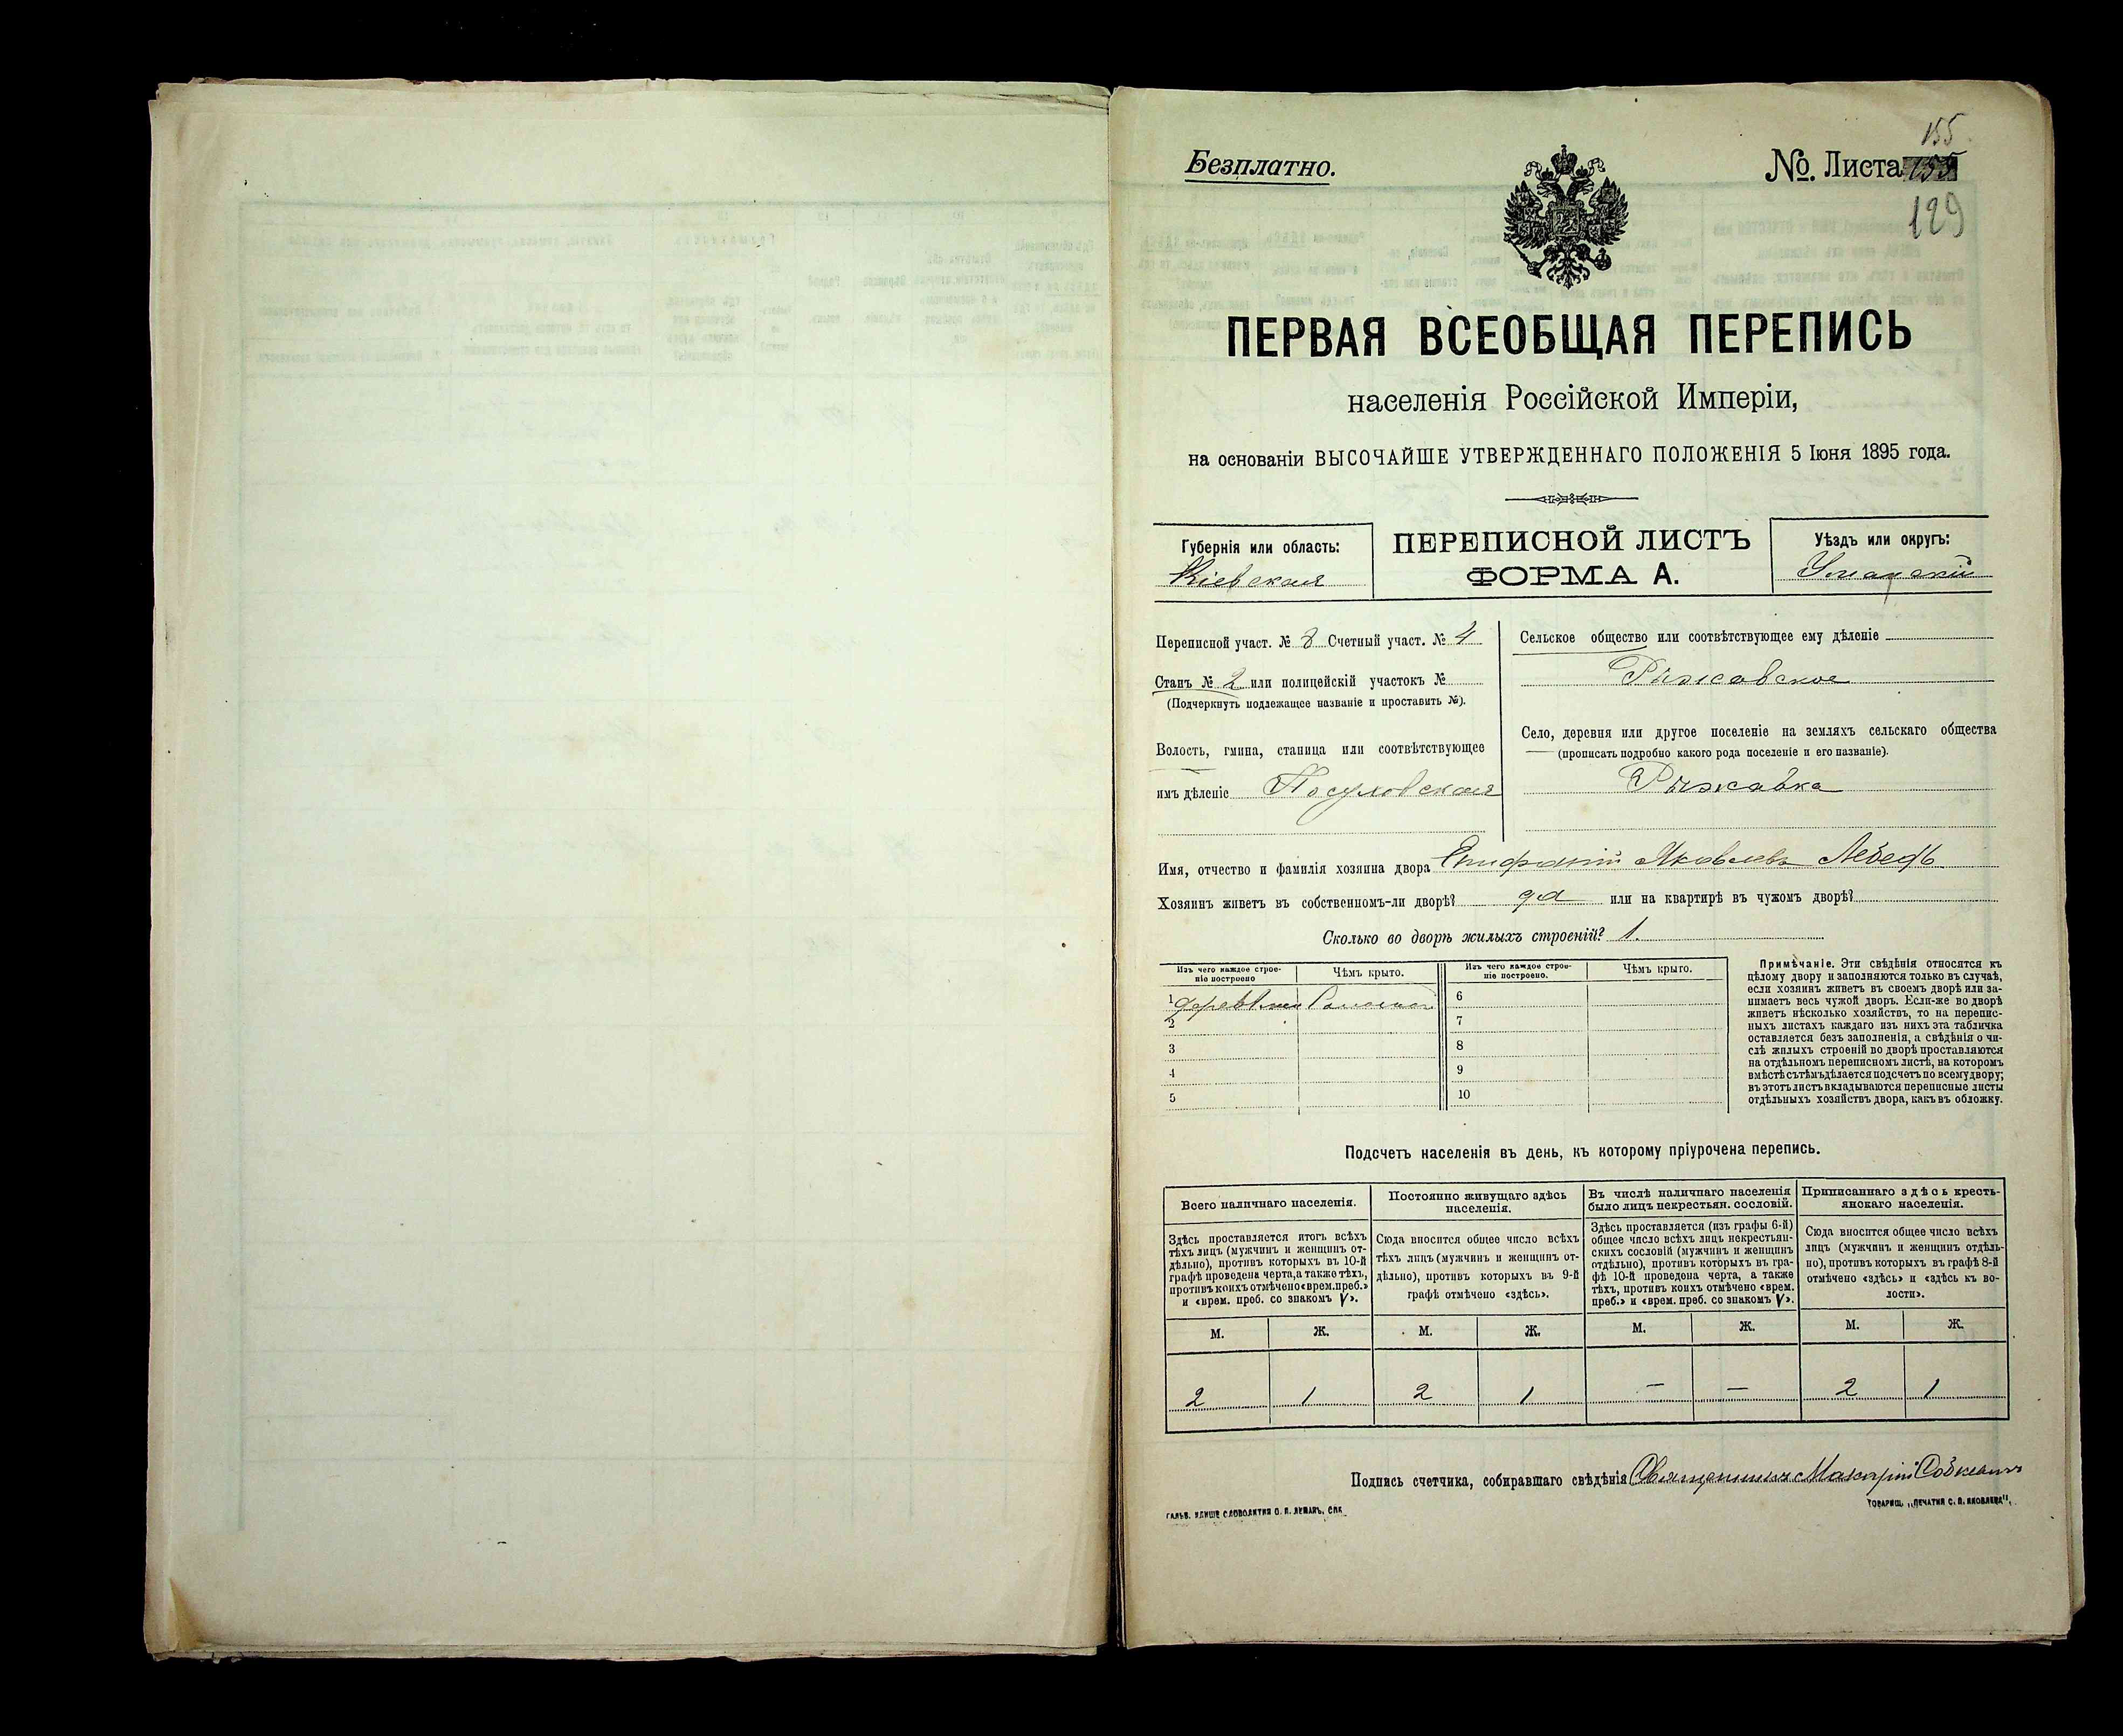 155
Безплатно.
№. Листа 155
129
ПЕРВАЯ ВСЕОБЩАЯ ПЕРЕПИСЬ
населенія Россійской Имперіи,
на основаніи ВЫСОЧАЙШЕ УТВЕРЖДЕННАГО ПОЛОЖЕНІЯ 5 Іюня 1895 года.
Губернія или область:
Кіевская
ПЕРЕПИСНОЙ ЛИСТЪ
ФОРМА А.
Уѣздъ или округъ:
Уманскій
Переписной участ. № 8 Счетный участ. № 4
Станъ № 2 или полицейскій участокъ №
(Подчеркнуть подлежащее названіе и проставить №).
Волость, гмина, станица или соотвѣтствующее
имъ дѣленіе
Сельское общество или соотвѣтствующее ему дѣленіе
Рыжавское
Село, деревня или другое поселеніе на земляхъ сельскаго общества
(прописать подробно какого рода поселеніе и его названіе).
Рыжавка
Имя, отчество и фамилія хозяина двора Епифаній Яковлевъ Лебедь
Хозяинъ живетъ въ собственномъ-ли дворѣ? да или на квартирѣ въ чужомъ дворѣ?
Сколько во дворѣ жилыхъ строеній? 1.
Изъ чего каждое строе-
ніе построено
Чѣмъ крыто.
Изъ чего каждое строе-
ніе построено.
Чѣмъ крыто.
1 Соломой 6
2 7
3 8
4 9
5 10
Примѣчаніе. Эти свѣдѣнія относятся къ
цѣлому двору и заполняются только въ случаѣ,
если хозяинъ живетъ въ своемъ дворѣ или за-
нимаетъ весь чужой дворъ. Если-же во дворѣ
живетъ нѣсколько хозяйствъ, то на перепис-
ныхъ листахъ каждаго изъ нихъ эта табличка
оставляется безъ заполненія, а свѣдѣнія о чи-
слѣ жилыхъ строеній во дворѣ проставляются
на отдѣльномъ переписномъ листѣ, на которомъ
вмѣстѣ съ тѣмъ дѣлается подсчетъ по всему двору;
въ этотъ листъ вкладываются переписные листы
отдѣльныхъ хозяйствъ двора, какъ въ обложку.
Подсчетъ населенія въ день, къ которому пріурочена перепись.
Всего наличнаго населенія.
Здѣсь проставляется итогъ всѣхъ
тѣхъ лицъ (мужчинъ и женщинъ от-
дѣльно), противъ которыхъ въ 10-й
графѣ проведена черта, а также тѣхъ,
противъ коихъ отмѣчено «врем. преб.»
и «врем. преб. со знакомъ V».
Постоянно живущаго здѣсь
населенія.
Сюда вносится общее число всѣхъ
тѣхъ лицъ (мужчинъ и женщинъ от-
дѣльно), противъ которыхъ въ 9-й
графѣ отмѣчено «здѣсь».
Въ числѣ наличнаго населенія
было лицъ некрестьян. сословій.
Здѣсь проставляется (изъ графы 6-й)
общее число всѣхъ лицъ некрестьян-
скихъ сословій (мужчинъ и женщинъ
отдѣльно), противъ которыхъ въ гра-
фѣ 10-й проведена черта, а также
тѣхъ, противъ коихъ отмѣчено «врем.
преб.» и «врем. преб. со знакомъ V».
Приписаннаго здѣсь кресть-
янскаго населенія.
Сюда вносится общее число всѣхъ
лицъ (мужчинъ и женщинъ отдѣль-
но), противъ которыхъ въ графѣ 8-й
отмѣчено «здѣсь» и «здѣсь къ во-
лости».
М. Ж. М. Ж. М. Ж. М. Ж.
2 1 2 1 — — 2 1
Подпись счетчика, собиравшаго свѣдѣнія Священникъ Макарій Собкевичъ
ТОВАРИЩ. „ПЕЧАТНЯ С. П. ЯКОВЛЕВА“.